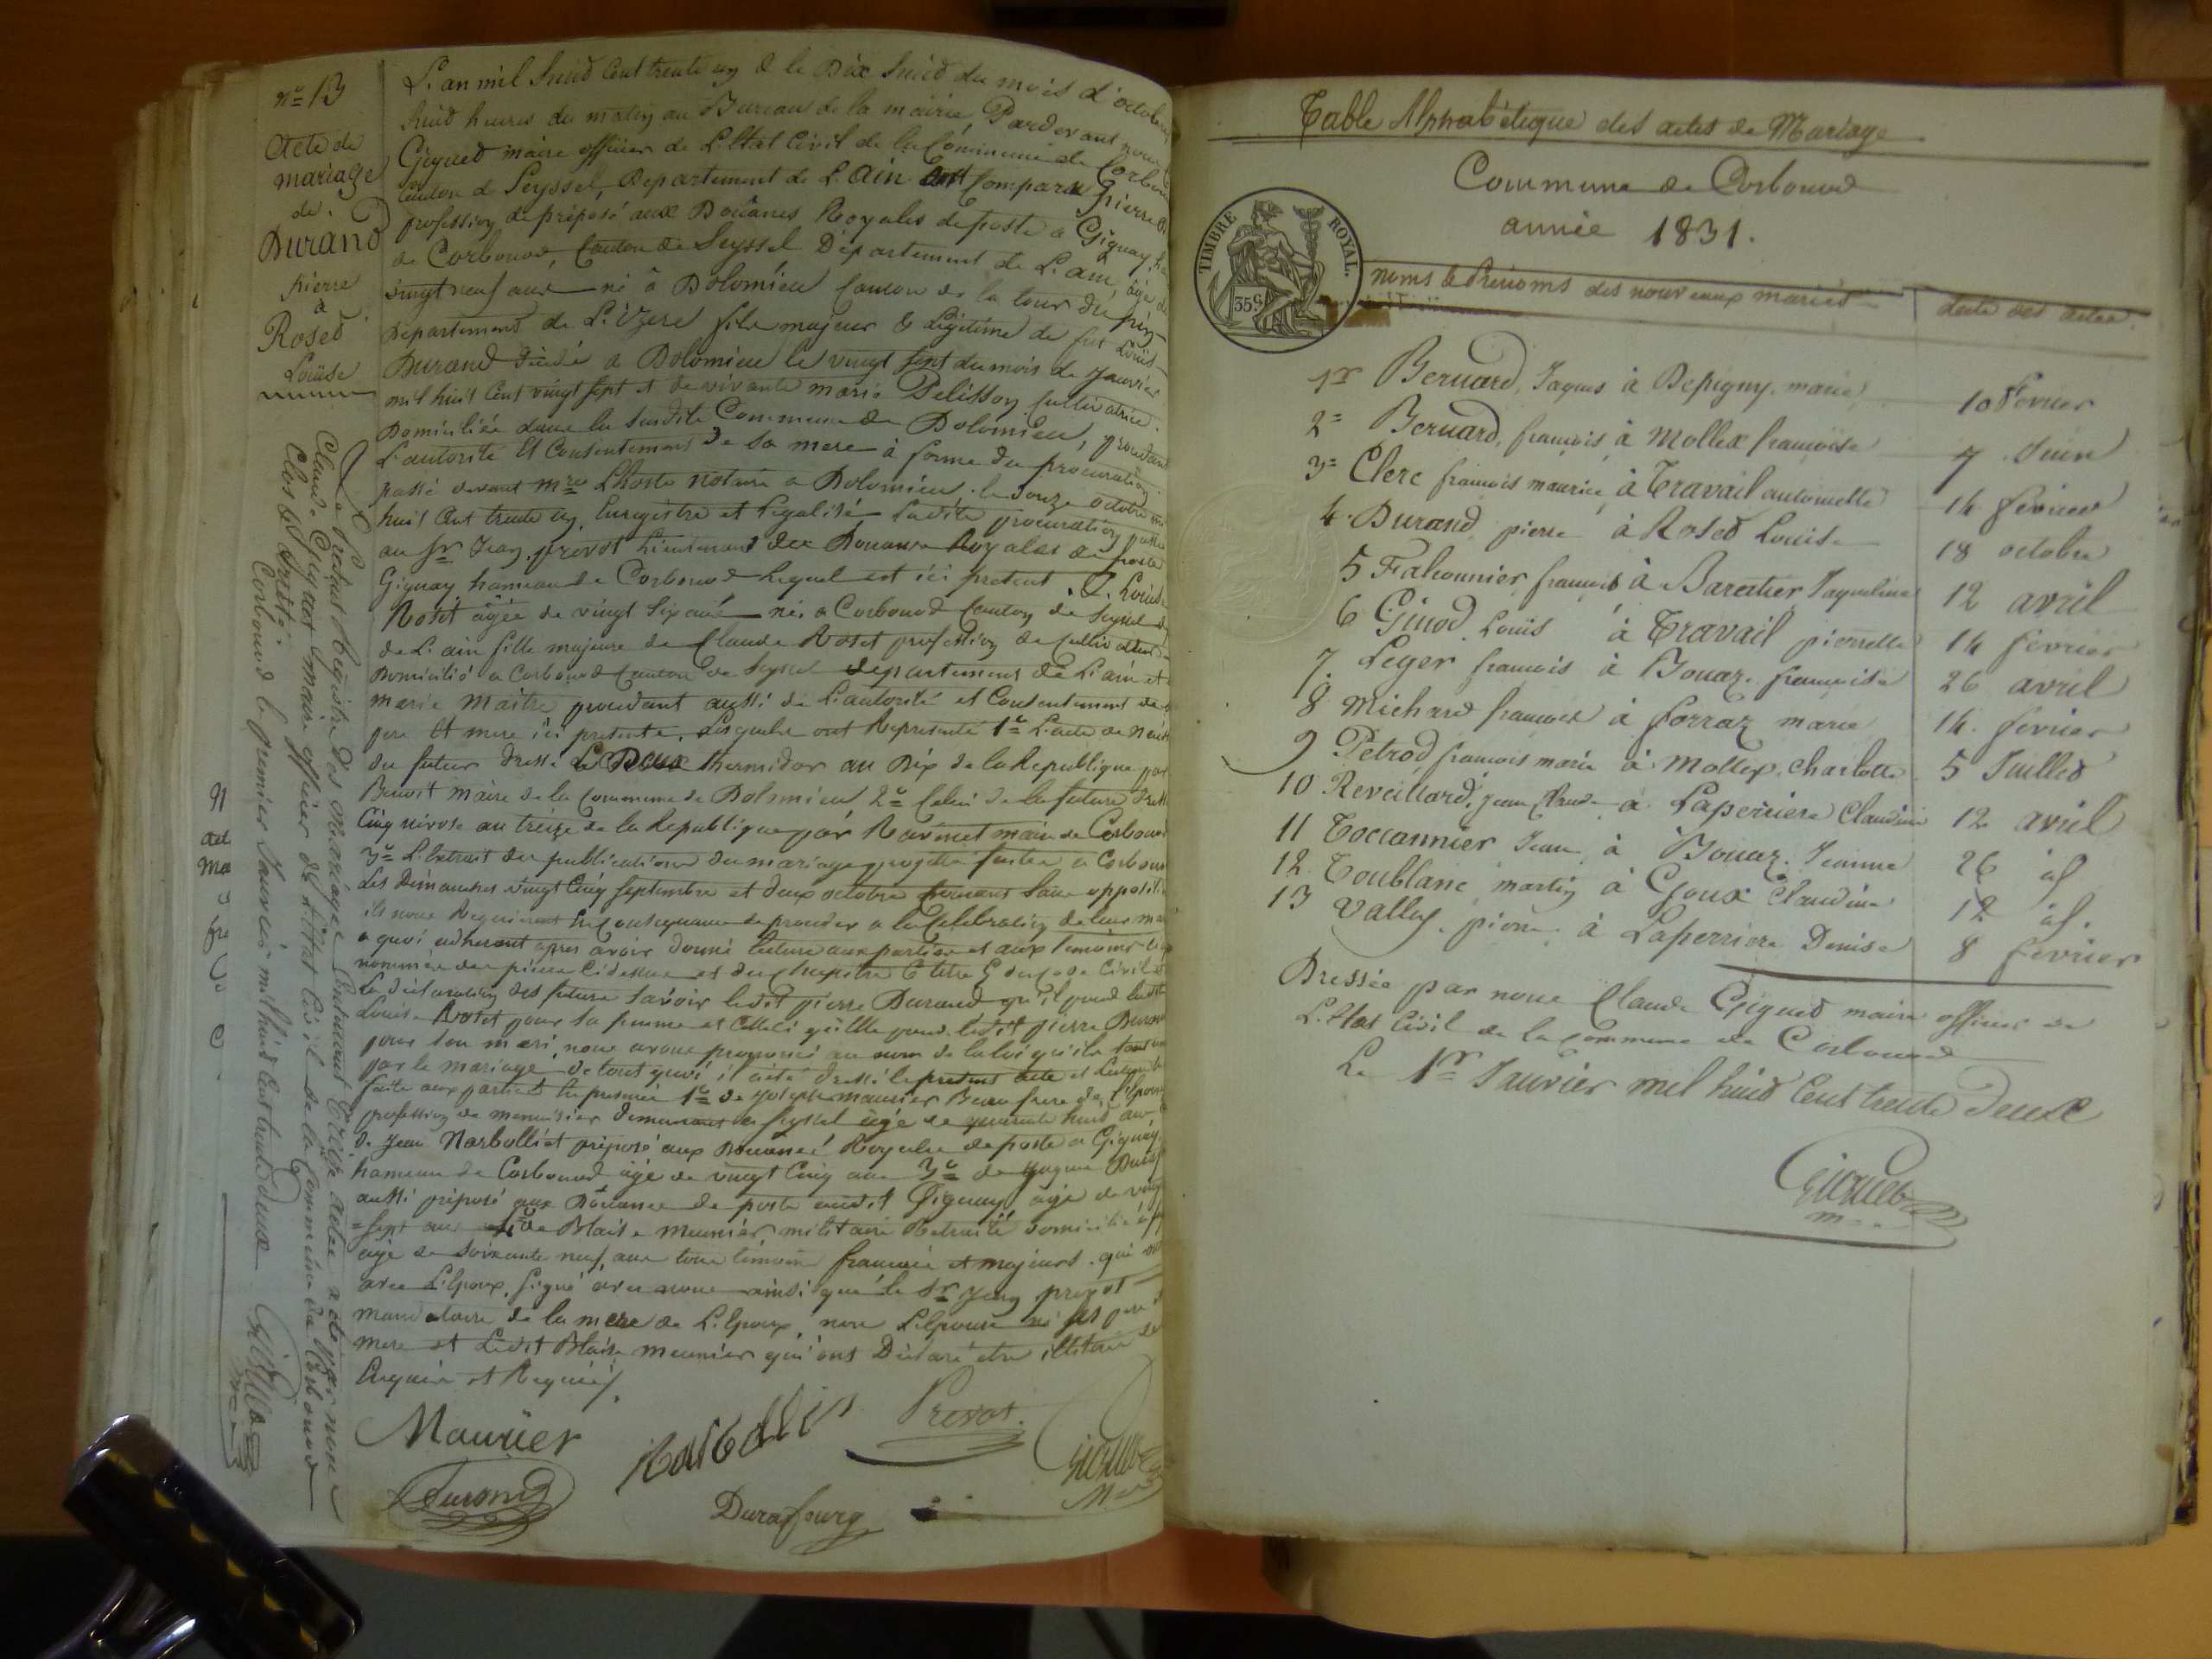 n° 13
Acte de
mariage
de
Durand
pierre
à
Roset
Louise
L'an mil huit Cent trente un & le Dix huit du mois d'octobre
huit heures du matin au Bureau de la mairie, Pardevant nous
Gignet maire officier de L'Etat Civil de la Commune de Corbonod
Canton de Seyssel, Departement de L'ain Comparu pierre
profession de préposé aux Douanes Royales de poste a Gignay
de Corbonod, Canton de Seyssel Département de L'ain, âgé de
vingt neuf ans né à Dolomieu Canton de la tour du pin
Departement de L'izere fils majeur & Légitime de fut Louis
Durand décédé a Dolomieu le vingt sept du mois de janvier
mil huit Cent vingt sept et de vivante marie Pelisson Cultivatrice
Domiciliée dans la susdite Commune de Dolomieu, procedant
L'autorité et Consentement de sa mere à forme du procuration
passé devant mre Lhoste notaire a Dolomieu le douze octobre mil
huit Cent trente un, Enregistré et Légalisé Ladite procuration passée
au Sr Jean prevot Lieutenant des Douanes Royales de poste
Gignay hameau de Corbonod Lequel est ici présent. & Louise
Roset agée de vingt six ans née a Corbonod Canton de Seyssel
de L'ain fille majeure de Claude Roset profession de Cultivateur
Domicilié a Corbonod Canton de Seyssel departement de L'ain et
marie Maitre procedant aussi de L'autorité et Consentement de
pere et mere ici presents, Lesquels ont Representé 1° L'acte de
du futur dressé Le Deux thermidor an Dix de la Republique par
Benoit maire de la Commune de Dolomieu 2° Celui de la future
Cinq nivose an treize de la Republique par Ravinet maire de Corbonod
3° L'Extrait des publications du mariage projetté faites a Corbonod
Les Dimanches vingt Cinq septembre et deux octobre sans
ils nous Requièrent En Consequence de proceder a la Celebration de leur
a quoi adherant apres avoir donné lecture aux parties et aux temoins
des pieces Cidessus et du Chapitre 6 titre 5 du Code Civil
La déclaration des futurs savoir ledit pierre Durand qu'il prend
Louise Roset pour sa femme et Celleci qu'Elle prend ledit pierre Durand
pour son mari, nous avons prononcé au nom de la loi qu'ils sont
par le mariage De tout quoi il a été dressé le present acte et Lecture
faite aux parties En presence 1° de joseph maurier Beau frere de L'Epouse
profession de menuisier demeurant a Seyssel âgé de quarante huit ans
De Jean Narbolliet préposé aux Douanes Royales de poste a Gignay
hameau de Corbonod âgé de vingt Cinq ans 3° de
aussi préposé aux Douanes de poste audit Gignay âgé de vingt
sept ans 4° de Blaise meunier, militaire Retraité domicilié
âgé de soixante neuf ans tous témoins francais et majeurs qui ont
avec L'Epoux signé avec nous ainsi que le Sr Jean prevot
mandataire de la mere de L'Epoux, non L'Epouse ni ses pere
mere et Ledit Blaise meunier qui ont Déclaré être illitéré de
Enquis et Requis
Maurier
Narbolliet
Prevot
Durand
Durafourg
Le présent Registre des mariages Contenant Treize actes a été par nous
Claude Gignet maire officier de L'Etat Civil de la Commune de Corbonod
Clos & arrêté
Corbonod le premier Janvier mil huit Cent trente deux
Table Alphabétique des actes de Mariage
Commune de Corbonod
année 1831.
TIMBRE ROYAL.
35 C.
noms & Prénoms des nouveaux mariés
date des actes
1er Bernard, Jaques à Depigny. marie 10 Fevrier
2= Bernard, francois à Mollex francoise 7 Juin
3= Clerc francois maurice à Travail antoinette 14 fevrier
4. Durand pierre à Roset Louise 18 octobre
5 Falconnier francois à Baratier Jaqueline 12 avril
6 Ginod Louis à Travail pierrette 14 fevrier
7. Leger francois à Bouaz francoise 26 avril
8 Michard francois à forraz marie 14. fevrier
9 Petrod francois marie à Mollex. Charlotte 5 Juillet
10 Reveillard, jean Claude à Laperriere Claudine 12 avril
11 Toccannier Jean à Bouaz. Jeanne 26 id
12. Toublanc martin à Goux Claudine 12 id.
13 Vallet. pierre à Laperriere Denise 8 fevrier
Dressée par nous Claude Gignet maire officier de
L'Etat Civil de la Commune de Corbonod
Le 1er Janvier mil huit Cent trente Deux